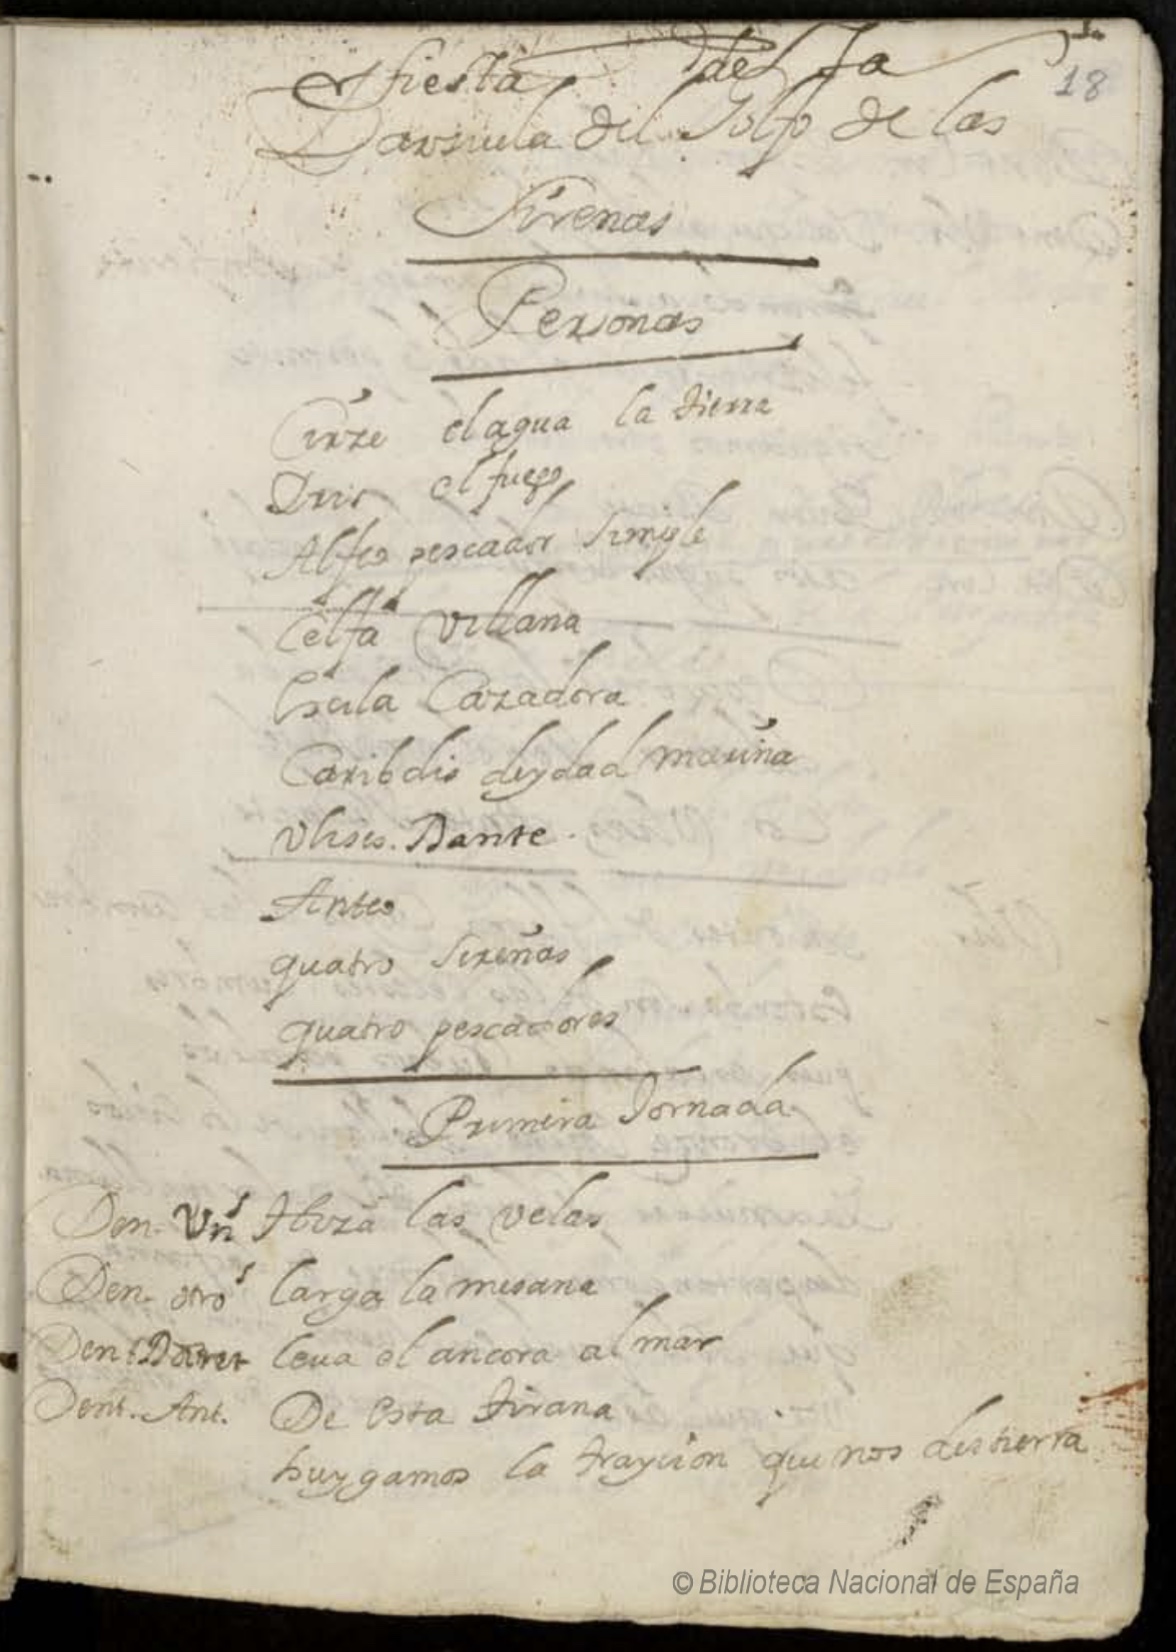 18
fiesta de la
Darzuela del Golfo de las
Sirenas
Personas
Cirze el agua la tierra
el fuego
Alfeo pescador simple
Celfa Villana
Escila Cazadora
Caribdis deydad marina
Ulises. Dante.
Anteo
quatro sirenas
quatro pescadores
Primera Jornada
Den. Uns Hiza las velas
Den. otros larga la mesana
Dent. leua el ancora al mar
Dent. Ant. De esta tirana
huygamos la trayzion que nos destierra
© Biblioteca Nacional de España